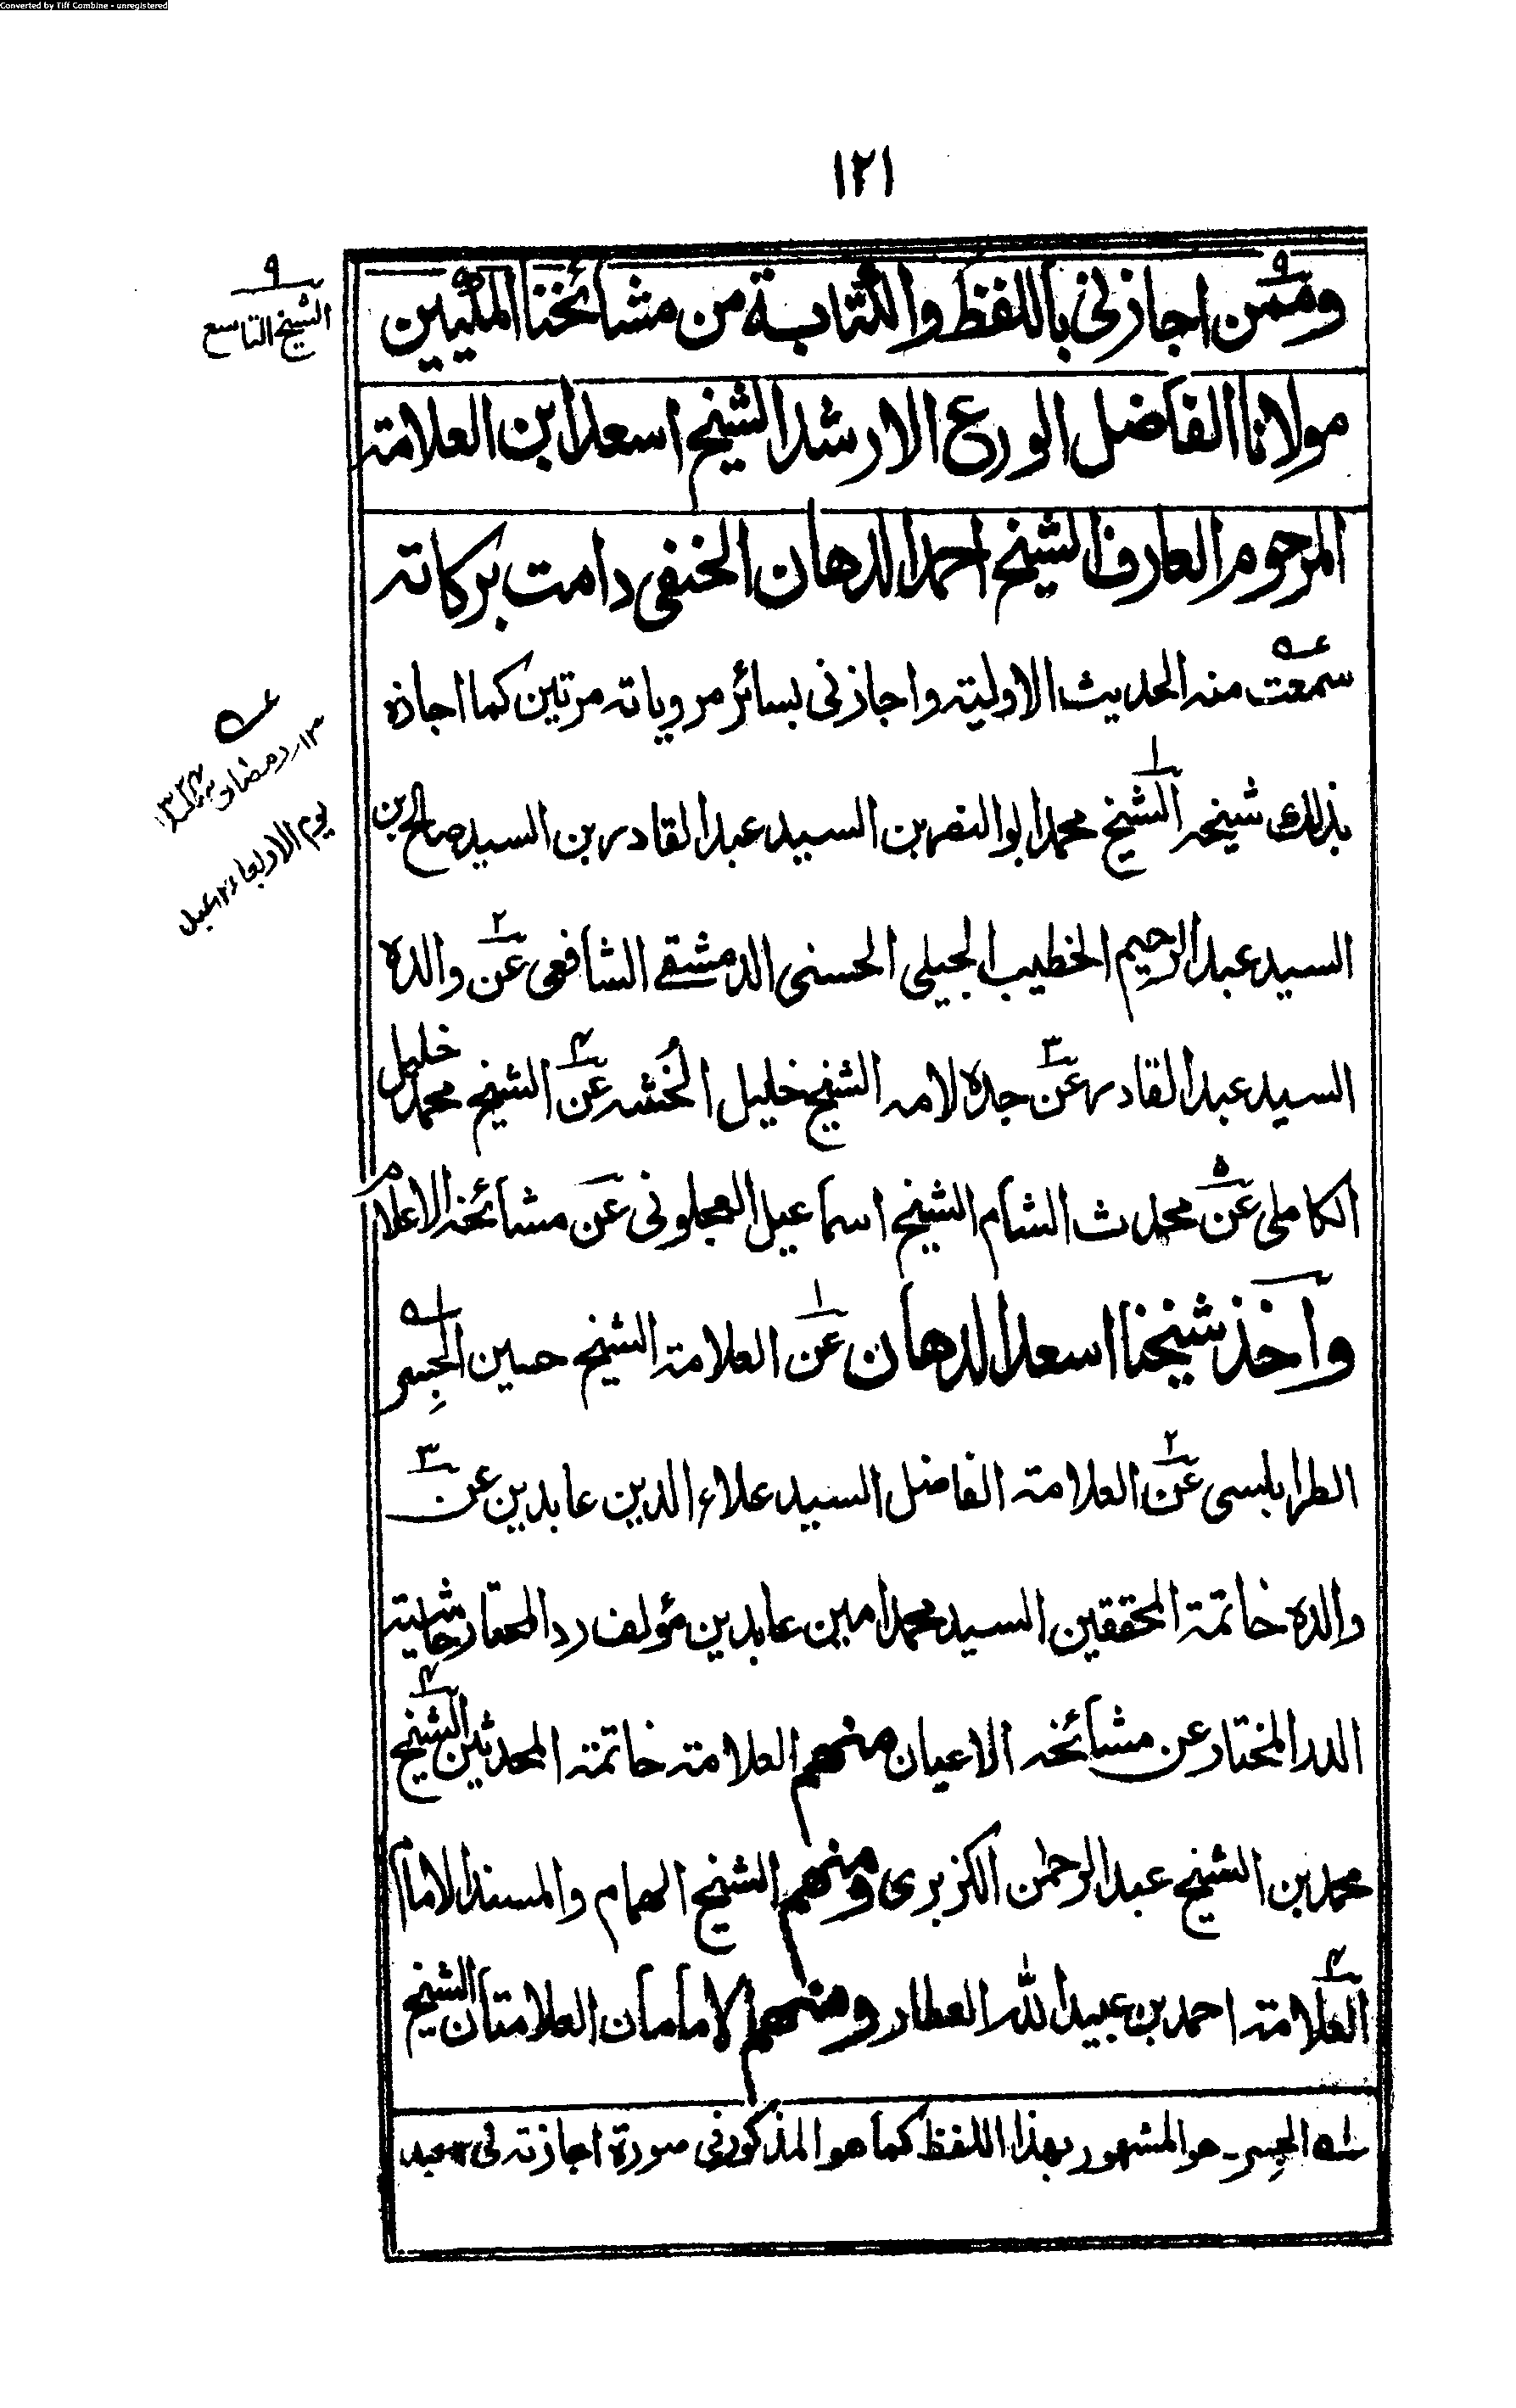 Converted by Tiff Combine - unregistered
١٢١
٩
الشيخ التاسع
وممن اجازنى باللفظ والكتابة من مشائخنا المكيين
مولانا الفاضل الورع الارشد الشيخ اسعد ابن العلامة
المرحوم العارف الشيخ احمد الدهان الحنفى دامت بركاته
سمعت منه الحديث الاولية واجازنى بسائر مروياته مرتين كما اجازه
بذلك شيخه الشيخ محمد ابو النصر بن السيد عبد القادر بن السيد صالح بن
السيد عبد الرحيم الخطيب الجيلى الحسنى الدمشقى الشافعى عن والده
السيد عبد القادر عن جده لامه الشيخ خليل الخُشه عن الشيخ محمد خليل
الكاملى عن محدث الشام الشيخ اسماعيل العجلونى عن مشائخه الاعلام
وآخذ شيخنا اسعد الدهان عن العلامة الشيخ حسين الجِسر
الطرابلسى عن العلامة الفاضل السيد علاء الدين عابدين عن
والده خاتمة المحققين السيد محمد امين عابدين مؤلف رد المحتار حاشية
الدر المختار عن مشائخه الاعيان منهم العلامة خاتمة المحدثين الشيخ
محمد بن الشيخ عبد الرحمن الكزبرى ومنهم الشيخ الهمام والمسند الامام
العلامة احمد بن عبيد الله العطار ومنهم الامامان العلامتان الشيخ
الجِسر۔ هو المشهور بهذا اللفظ كما هو المذكور فى صورة اجازته لى ١٢ عبد
١٣ رمضان
يوم الاربعاء ١٢ عبد